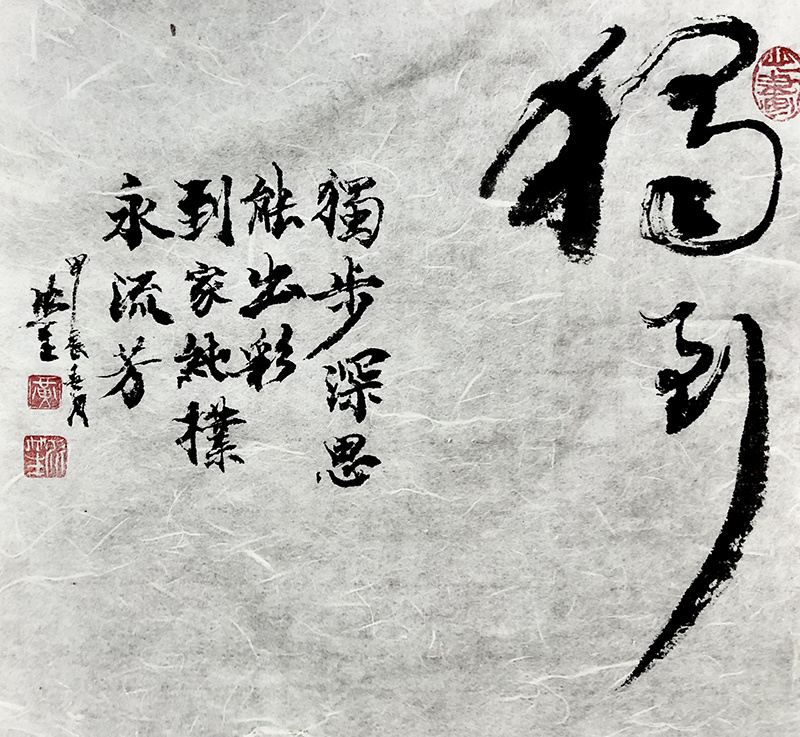 獨到
獨步深思
能出彩
到家純樸
永流芳
甲辰春月